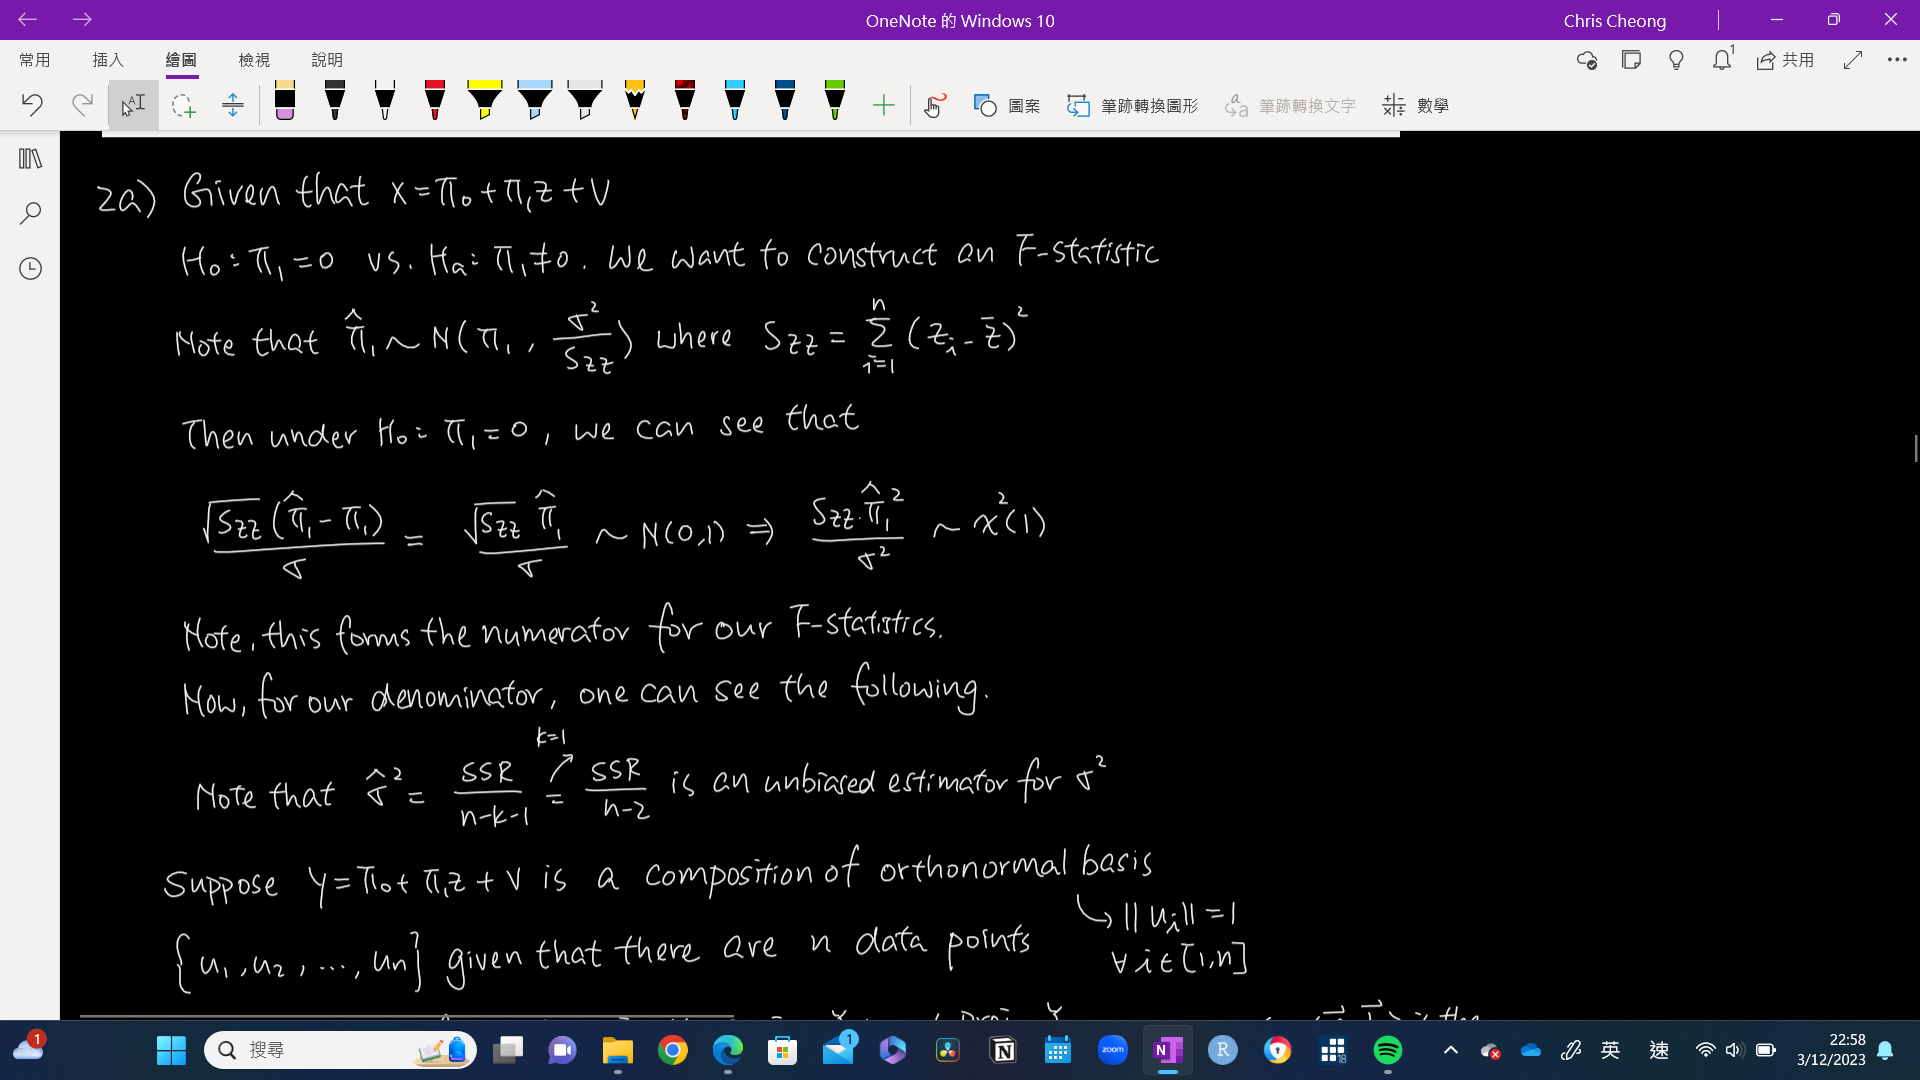 OneNote 的 Windows 10
Chris Cheong
常用 插入 繪圖 檢視 說明
1
共用
圖案 筆跡轉換圖形 筆跡轉換文字 數學
2a) Given that x = π₀ + π₁z + v
H₀: π₁ = 0 vs. Hₐ: π₁ ≠ 0. We want to construct an F-statistic
Note that π̂₁ ~ N(π₁, σ²/S_zz) where S_zz = Σ_{i=1}^{n} (z_i - z̄)²
Then under H₀: π₁ = 0, we can see that
√S_zz (π̂₁ - π₁)/σ = √S_zz π̂₁/σ ~ N(0,1) ⇒ S_zz·π̂₁²/σ² ~ χ²(1)
Note, this forms the numerator for our F-statistics.
Now, for our denominator, one can see the following.
k=1
Note that σ̂² = SSR/(n-k-1) = SSR/(n-2) is an unbiased estimator for σ²
Suppose Y = π₀ + π₁z + v is a composition of orthonormal basis
↳ ||u_i|| = 1
∀ i ∈ [1,n]
{u₁, u₂, ..., uₙ} given that there are n data points
1
搜尋
1
zoom
N
R
18
英 速
22:58
3/12/2023